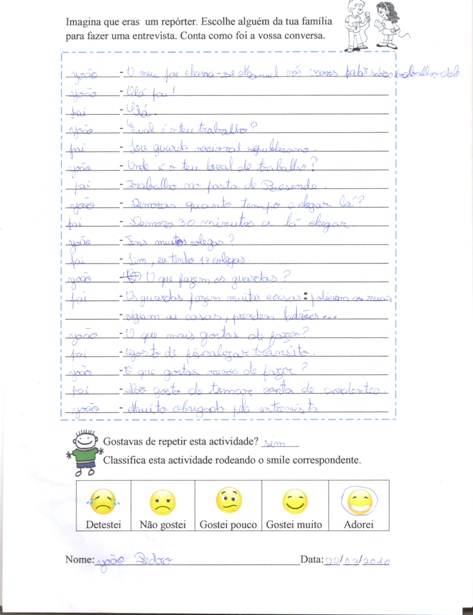 Imagina que eras um repórter. Escolhe alguém da tua família
para fazer uma entrevista. Conta como foi a vossa conversa.
joão - O meu pai chama-se Manuel nós vamos falar sobre o trabalho dele
joão - Olá pai!
pai - Olá.
joão - Qual é o teu trabalho?
pai - Sou guarda nacional republicano.
joão - Onde é o teu local de trabalho?
pai - Trabalho no posto de Resende.
joão - Demoras quanto tempo a chegar lá?
pai - Demoro 30 minutos a lá chegar
joão - Tens muitos colegas?
pai - Sim, eu tenho 17 colegas.
joão - O que fazem os guardas?
pai - Os guardas fazem muitas coisas: policiam as ruas,
vigiam as casas, prendem ladrões...
joão - O que mais gostas de fazer?
pai - Gosto de fiscalizar trânsito.
joão - O que gostas menos de fazer?
pai - Não gosto de tomar conta de acidentes
joão - Muito obrigado pela entrevista
Gostavas de repetir esta actividade? sim
Classifica esta actividade rodeando o smile correspondente.
Detestei Não gostei Gostei pouco Gostei muito Adorei
Nome: joão Pedro Data: 22/03/2010